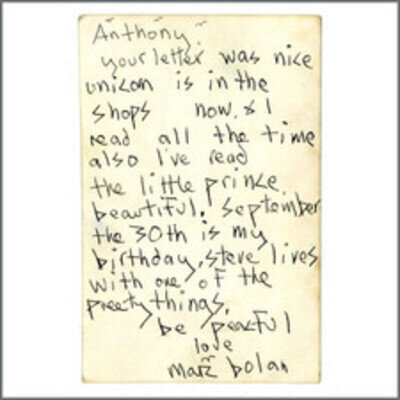 Anthony
your letter was nice
unicorn is in the
shops now. & I
read all the time
also I've read
the little prince.
beautiful. September
the 30th is my
birthday, steve lives
with one of the
preety things.
be peaceful
love
marc bolan